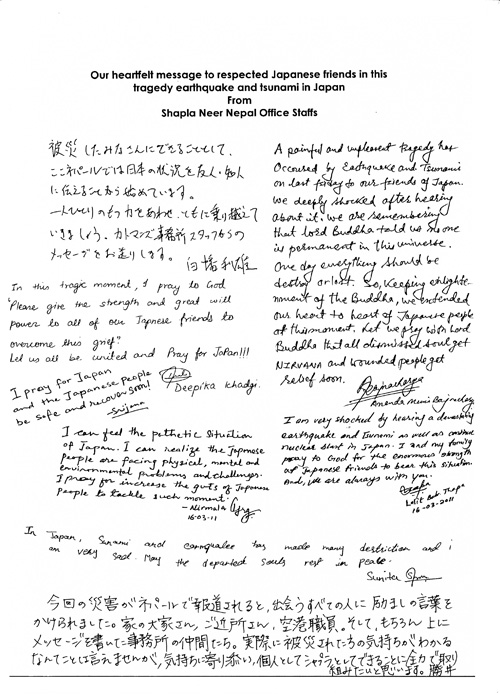 Our heartfelt message to respected Japanese friends in this
tragedy earthquake and tsunami in Japan
From
Shapla Neer Nepal Office Staffs
被災したみなさんにできることとして、
ここネパールでは日本の状況を友人・知人
に伝えることから始めています。
一人ひとりのもつ力をあわせ、ともに乗り越えて
いきましょう。カトマンズ事務所スタッフからの
メッセージをお送りします。
白幡利雄
In this tragic moment, I pray to God
"Please give the strength and great will
power to all of our Japnese friends to
overcome this grief"
Let us all be united and Pray for JaPan!!!
Deepika Khadgi.
I pray for Japan
and the Japanese People
be safe and recover soon!
Srijana
I can feel the pethetic situation
of Japan. I can realize the Japnese
People are facing physical, mental and
environmental problems and challenges.
I pray for increase the guts of Japanese
People to tackle such moment.
- Nirmala
16-03-11
A painful and unpleasent tragedy has
Occoured by Earthquake and Tsunami
on last friday to our friends of Japan.
We deeply shocked after hearing
about it. We are remembering
that lord Buddha told us no one
is permanent in this universe.
One day everything should be
destroy or lost. So, Keeping enlighte-
nment of the Buddha, we extended
our heart to heart of Japanese people
at this moment. Let we pray with Lord
Buddha that all dismissed soul get
NIRVANA and wounded people get
relief soon.
Ananda Muni Bajracharya
I am very shocked by hearing a devastating
earthquake and Tsunami as well as continue
nuclear blast in Japan. I and my family
pray to God for the enormous strength
of Japanese friends to bear this situation.
And, We are always with you.
Lalit Bdr. Thapa
16-03-2011
In Japan, Sunami and earnquake has made many destriction and i
am very sad. May the departed souls rest in peace.
Sunita
今回の災害がネパールで報道されると、出会うすべての人に励ましの言葉を
かけられました。家の大家さん、ご近所さん、空港職員。そして、もちろん上に
メッセージを書いた事務所の仲間たち。実際に被災された方の気持ちがわかる
なんてことは言えませんが、気持ちに寄り添い、個人としてシャプラとしてできることに全力で取り
組みたいと思います。勝井